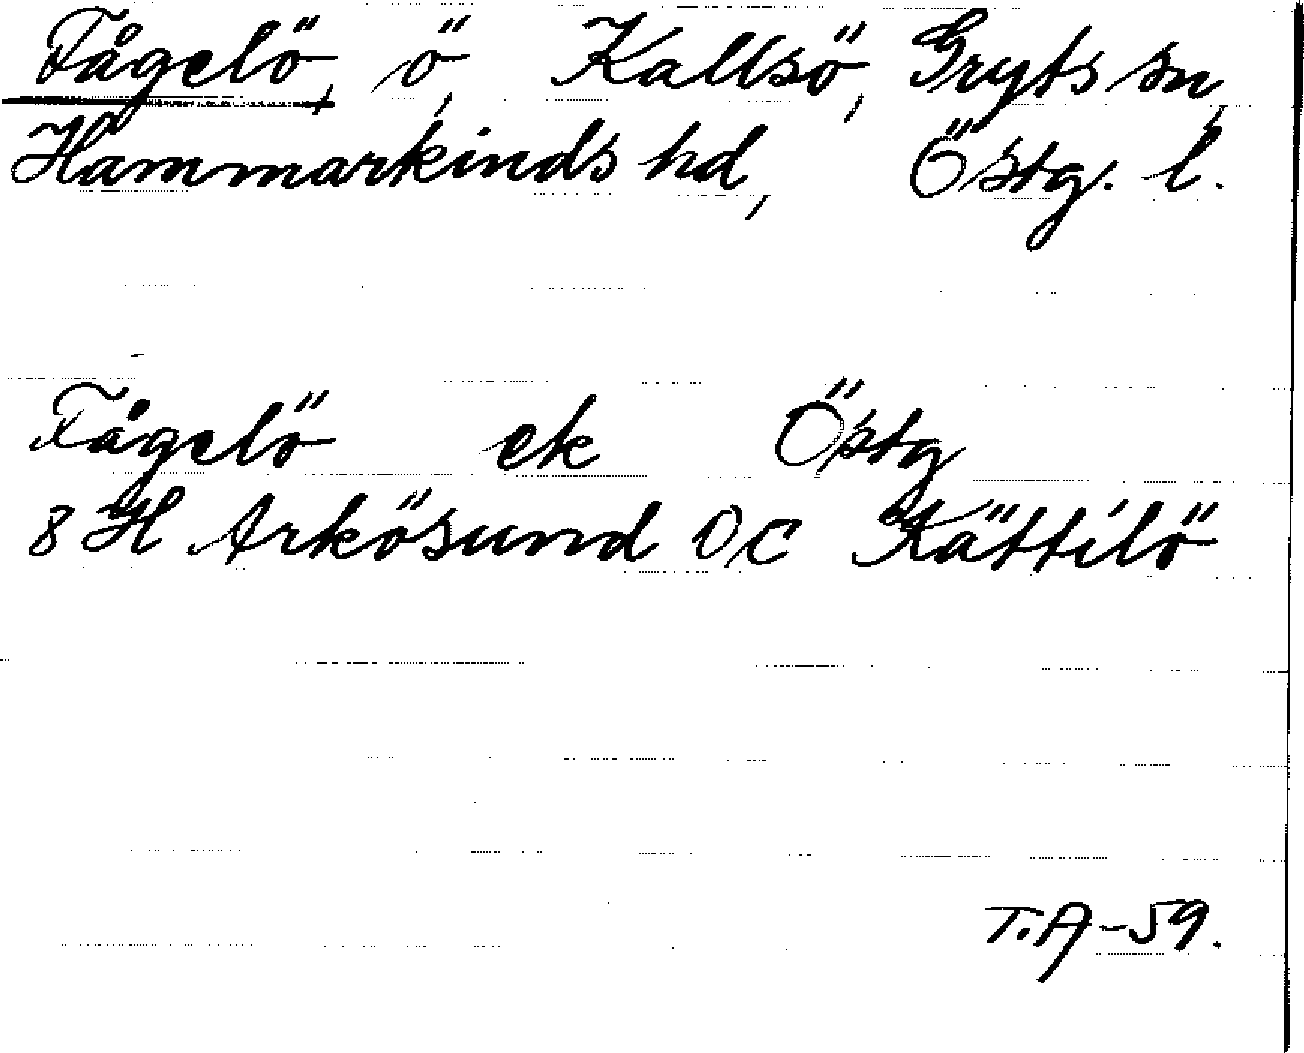 Fågelö, ö, Kallsö, Gryts sn,
Hammarkinds hd, Östg. l.
Fågelö ek Östg
8 H Arkösund DC Kättilö
T.A-59.